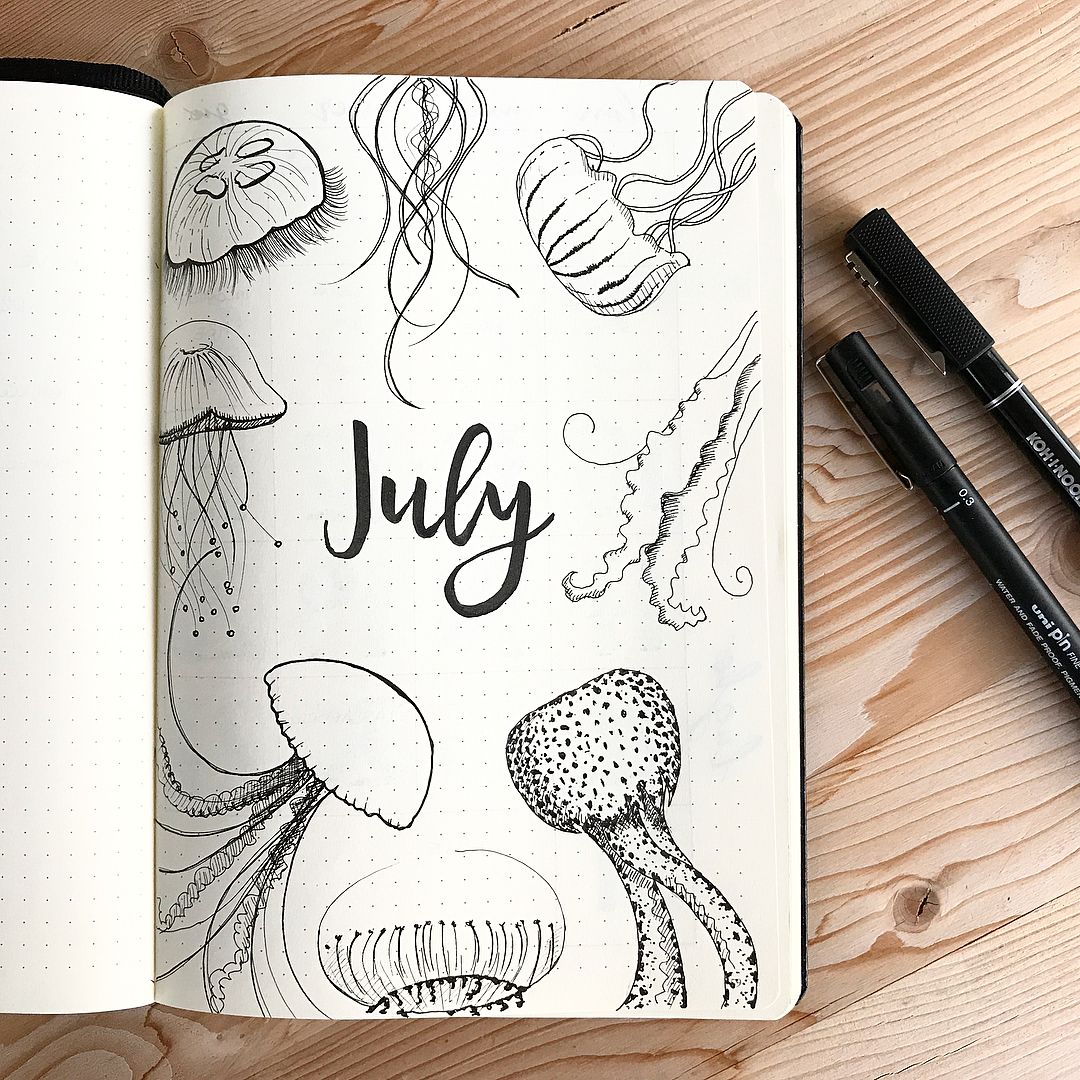 July
KOH-I-NOOR
0.3
uni pin FINE
WATER AND FADE PROOF, PIGME